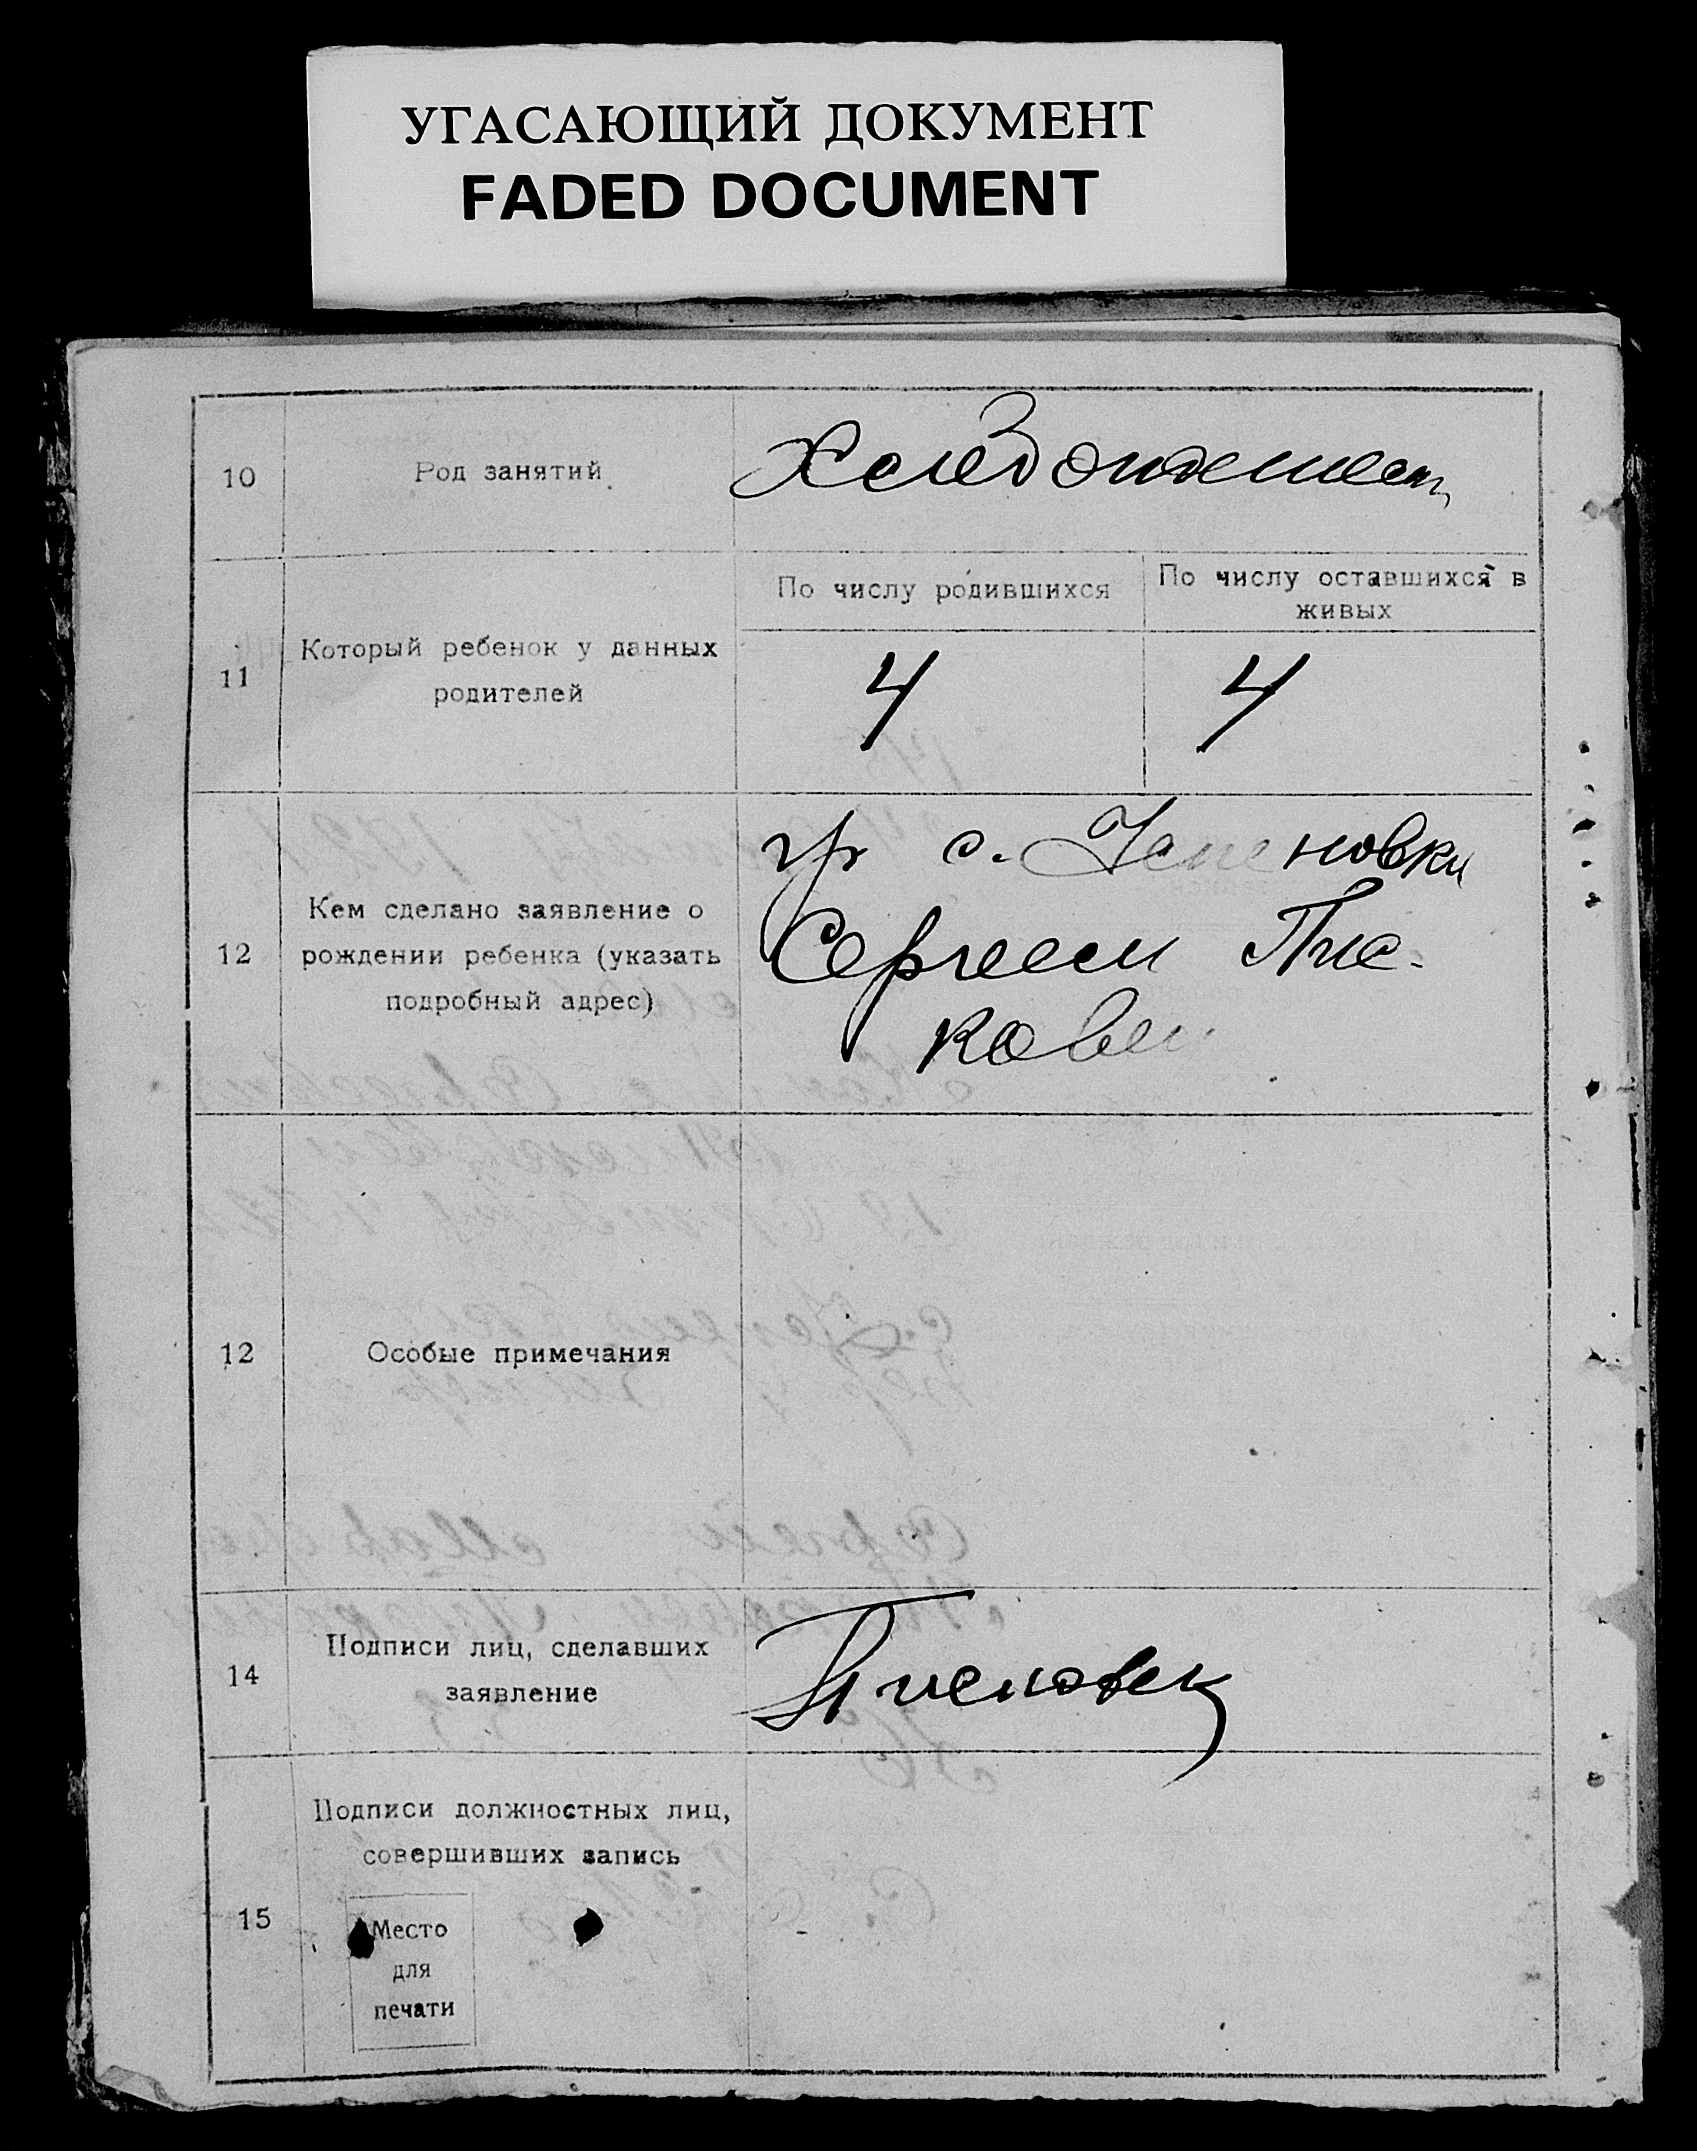 УГАСАЮЩИЙ ДОКУМЕНТ
FADED DOCUMENT
10
Род занятий
11
Который ребенок у данных
родителей
По числу родившихся
По числу оставшихся в
живых
4
4
12
Кем сделано заявление о
рождении ребенка (указать
подробный адрес)
гр с. новки
Сергеем Пис-
12
Особые примечания
14
Подписи лиц, сделавших
заявление
15
Подписи должностных лиц,
совершивших запись
Место
для
печати